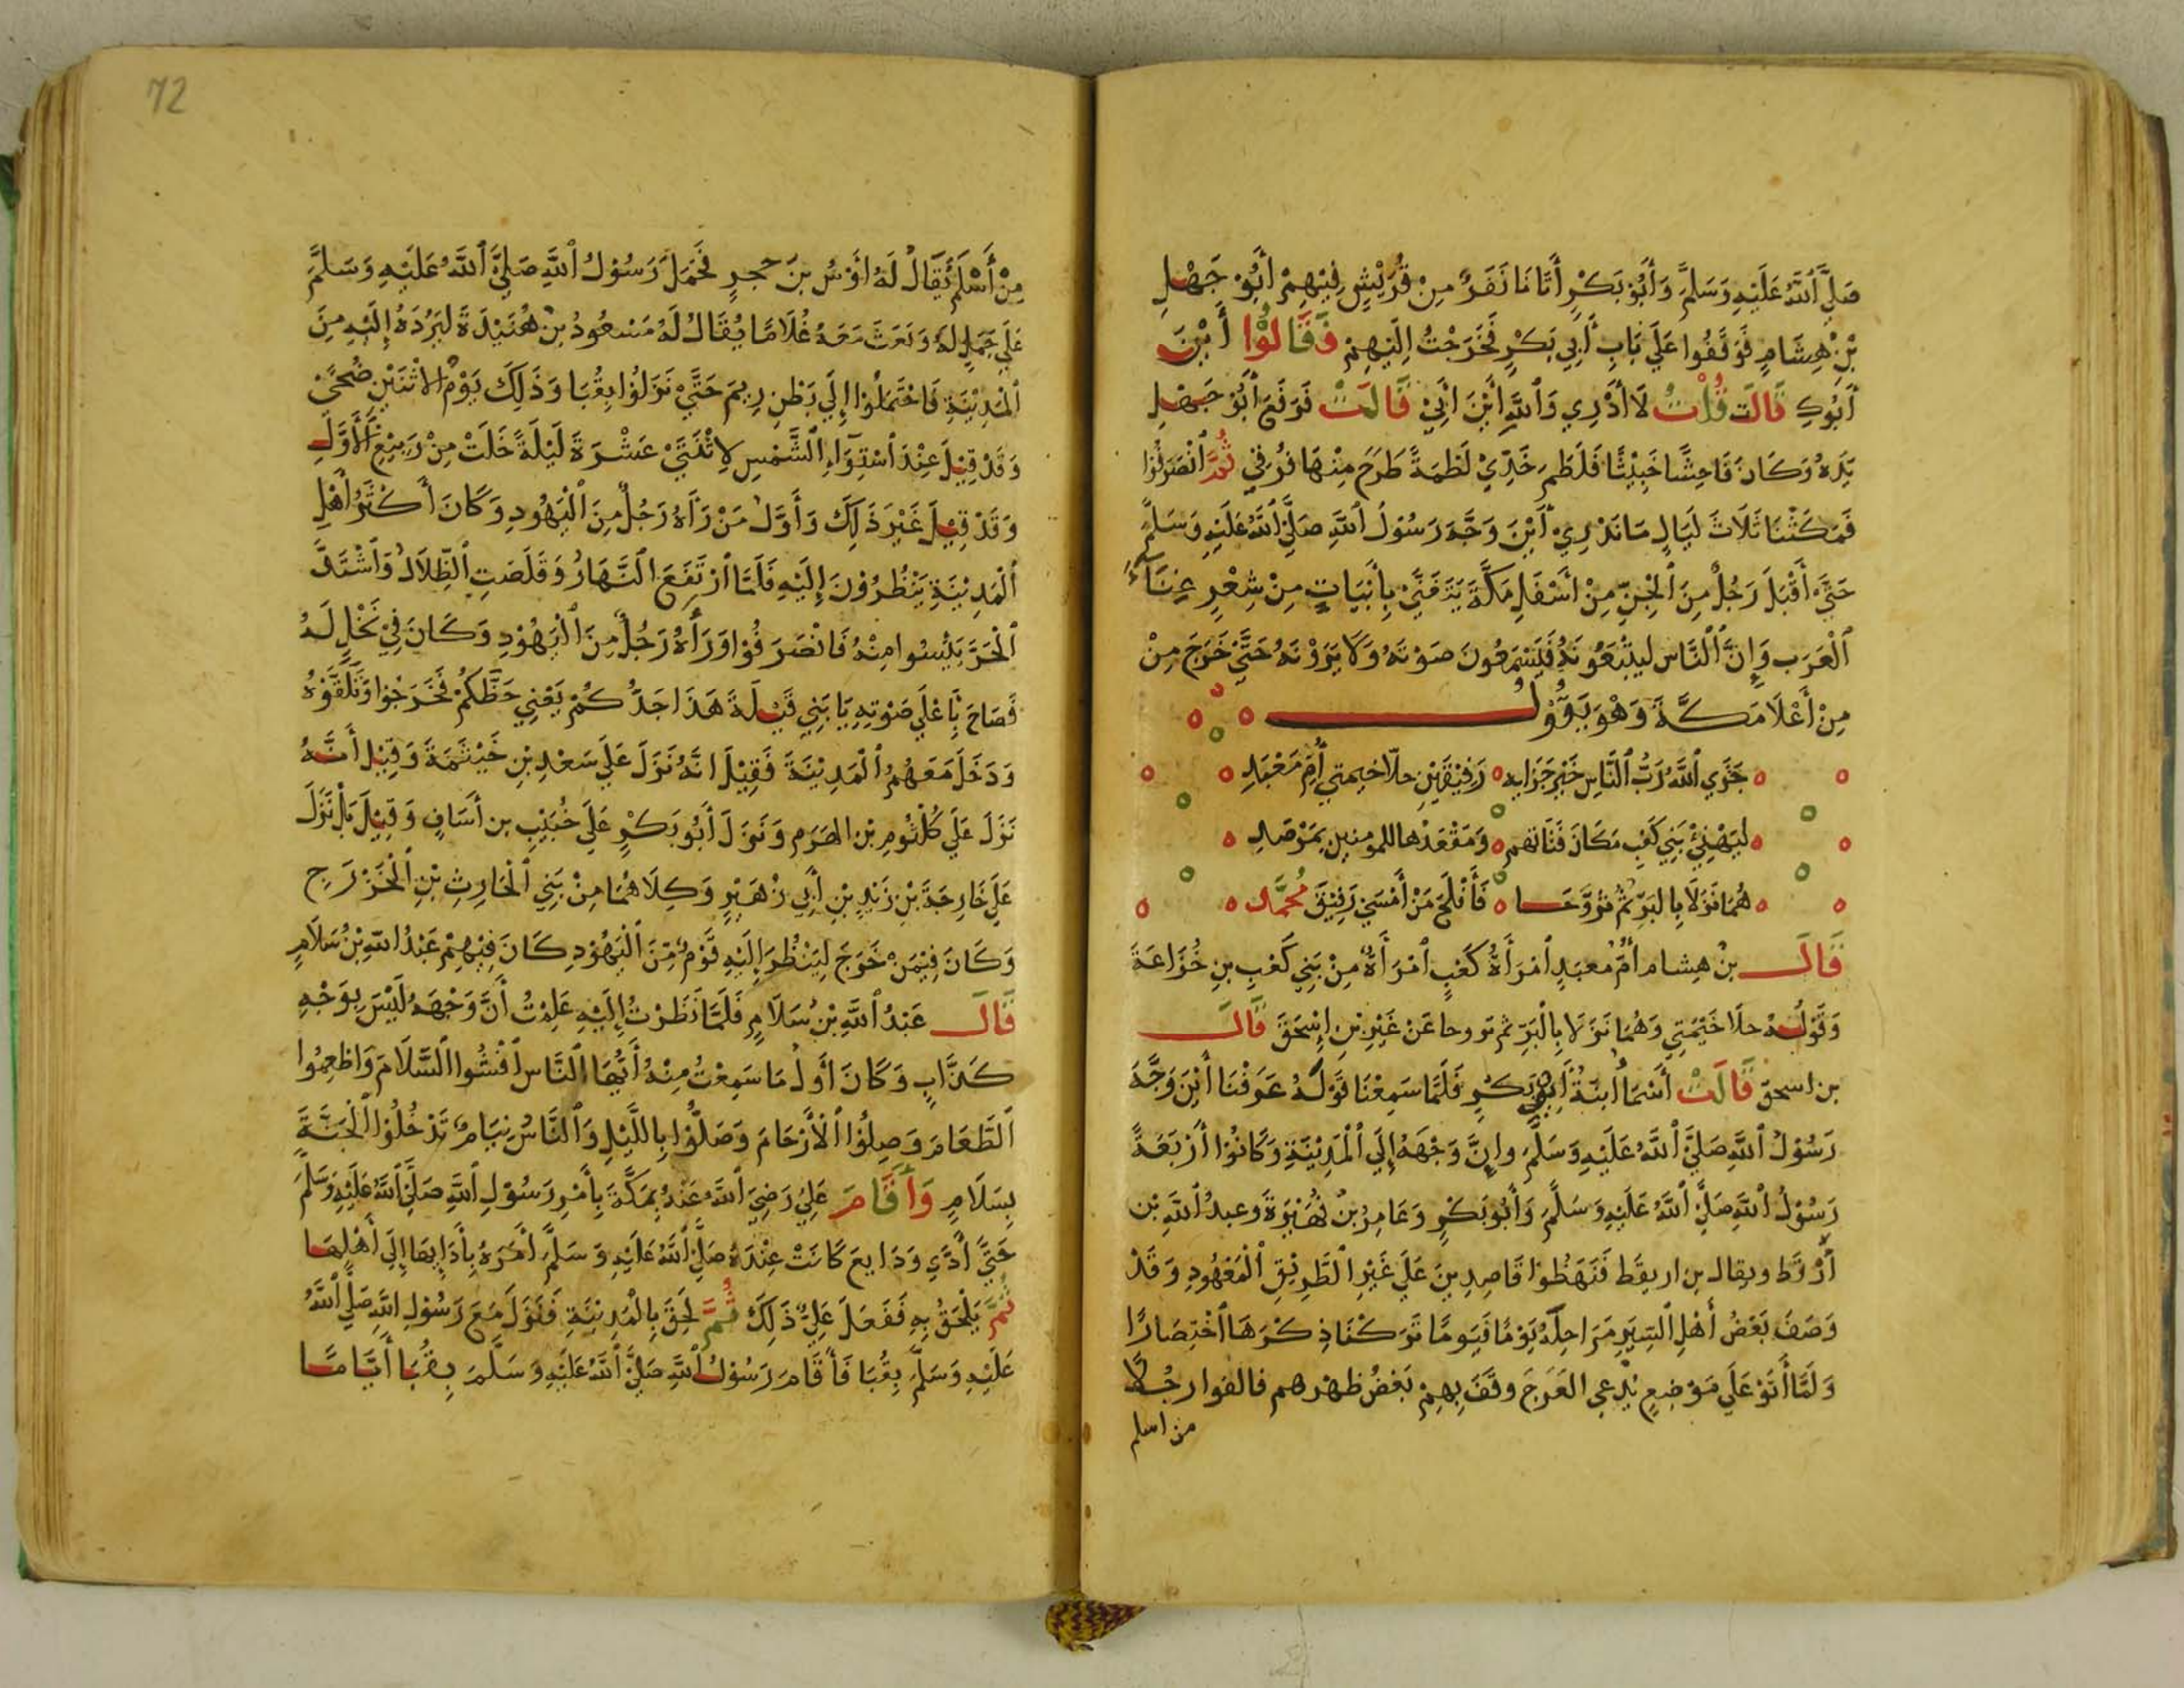 صَلَّى ٱللَّهُ عَلَيْهِ وَسَلَّمَ وَأَبُوْ بَكْرٍ أَتَانَا نَفَرٌ مِنْ قُرَيْشٍ فِيْهِمْ أَبُوْ جَهْلِ
بْنِ هِشَامٍ فَوَقَفُوا عَلَي بَابِ أَبِي بَكْرٍ فَخَرَجْتُ اِلَيْهِمْ فَقَالُوْا أَيْنَ
أَبُوكِ قَالَت قُلْتُ لَا أَدْرِي وَٱللَّهِ أَيْنَ أَبِيْ قَالَتْ فَرَفَعَ أَبُوْ جَهْلِ
يَدَهُ وَكَانَ فَاحِشًا خَبِيْثًا فَلَطَمَ خَدِّيْ لَطْمَةً طَرَحَ مِنْهَا قُرْفِي ثُمَّ ٱنْصَرَفُوْا
فَمَكَثْنَا ثَلَاثَ لَيَالٍ مَا نَدْرِيْ أَيْنَ وَجَّهَ رَسُوْلُ ٱللَّهِ صَلَّى ٱللَّهُ عَلَيْهِ وَسَلَّمَ
حَتَّىْ أَقْبَلَ رَجُلٌ مِنَ ٱلْجِنِّ مِنْ أَسْفَلِ مَكَّةَ يَتَغَنَّىْ بِأَبْيَاتٍ مِنْ شِعْرِ غِنَآءِ
ٱلْعَرَبِ وَإِنَّ ٱلنَّاسَ ليَتْبَعُونَهُ فَيَسْمَعُونَ صَوْتَهُ وَلَا يَرَوْنَهُ حَتَّىْ خَرَجَ مِنْ
مِنْ أَعْلَا مَكَّةَ وَهْوَ يَقُوْلُ
جَزَي ٱللَّهُ رَبُّ ٱلنَّاسِ خَيْرَ جَزَايِهِ رَفِيْقَيْنِ حلَّا خيمتي أُمِّ مَعْبَدِ
ليَهْنِئْ بَنِي كَعْبٍ مَكَانَ فَتَاتهم وَمَقْعَدُها للمومنين بِمَرْصَدِ
هُمَا نَزَلَا بِالبَرِّ ثُمَّ تَرَوَّحَا فَأَفْلَحَ مَنْ أَمْسَى رَفِيْقَ مُحَمَّدِ
قَالَ بنُ هِشام أمُّ مُعبَدٍ ٱمْرَأَةُ كَعْبٍ ٱمْرَأَةٌ مِنْ بَنِي كَعْبِ بنِ خُزَاعَةَ
وَقَوْلُهُ حلَا خَيْمَتِي وَهُمَا نَزَلَا بِالْبَرِّ ثم تروحا عَنْ غَيْرِ بْنِ إِسْحَقَ قَالَ
بن اسحق قَالَتْ أَسْمَا ٱبنَةُ أَبِي بَكْرٍ فَلَمَّا سَمِعْنَا قَوْلَهُ عَرَفْنَا أَيْنَ وَجَّهَ
رَسُوْلُ ٱللَّهِ صَلَّىَ ٱللَّهُ عَلَيْهِ وَسَلَّمَ وإنَّ وَجْهَهُ إِلَى ٱلْمَدِيْنَةِ وَكَانُوْا أَرْبَعَةً
رَسُوْلُ ٱللَّهِ صَلَّى ٱللَّهُ عَلَيْهِ وَسَلَّمَ وَأَبُوْ بَكْرٍ وَعَامِرُ بْنُ فُهَيْرَةَ وعبدُ ٱللَّهِ بْن
أَرْقَط ويقال بن اريقط فَنَهَضُوْا قَاصِدِينَ عَلَي غَيْرِ الطَّرِيْقِ ٱلْمَعْهُودِ وَقَدْ
وَصَفَ بَعَضُ أَهْلِ ٱلسِّيَرِ مَرَاحِلَهُ يَوْمًا فَيَومًا تَرَكْنَا ذِكْرَهَا ٱخْتِصَارًا
وَلَمَّا أَتَوْ عَلَي مَوْضِعٍ يُدعي العَرَجَ وقَفَ بِهِمْ بَعْضُ ظهْرِهم فالفوا رجُلًا
من اسلم
72
مِنْ أَسْلَمَ يُقَالُ لَهُ اَوْسُ بنَ حَجرٍ فَحَمَلَ رَسُوْلُ ٱللَّهِ صَلَّىَ ٱللَّهُ عَلَيْهِ وَسَلَّمَ
عَلَي جَمَلٍ لَهُ وَبَعَثَ مَعَهُ غُلَامًا يُقَالُ لَهُ مَسْعُودُ بنُ هُنَيْدَةَ لِيَرُدَهُ إِلَيْهِ مِنَ
ٱلْمَدِيْنَةِ فَاحْتَمَلُوْا إِلَي بَطْنِ رِيمَ حَتَّىْ نَزَلُوْا بِقُبَا وَذَلِكَ يَوْمُ الاثْنَيْنِ ضُحًى
وَقَدْ قِيْلَ عِنْدَ ٱسْتِوَآءِ ٱلشَّمْسِ لِاثْنَتَىْ عَشْرَةَ لَيْلَةً خَلَتْ مِنْ رَبِيْعِ ٱلْأَوَّلِ
وَقَدْ قِيْلَ غَيْرَ ذَلِكَ وَأَوَّلُ مَنْ رَآهُ رَجُلٌ مِنَ ٱلْيَهُودِ وَكَانَ أَكْثَرُ أَهْلِ
ٱلْمَدِيْنَةِ يَنْظُرُوْنَ إِلَيْهِ فَلَمَّا ٱرْتَفَعَ ٱلنَّهَارُ وَقَلَصَتِ ٱلظِّلَالُ وَٱشْتَدَّ
ٱلْحَرَّ يَئِسُوا مِنْهُ فَانْصَرَفُوْا وَرَأَهُ رَجُلٌ مِنَ ٱلْيَهُوْدِ وَكَانَ فِيْ نَخْلٍ لَهُ
فَصَاحَ بِأَعْلَي صَوْتِهِ يَا بَنِي قَيْلَةَ هَذَا جَدُّكُمْ يَعْنِي حَظَّكُمْ فَخَرَجُوْا وَتَلَقَّوْهُ
وَدَخَلَ مَعَهُمُ ٱلْمَدِيْنَةَ فَقِيْلَ انَهُ نَزَلَ عَلَي سَعْدِ بْنِ خَيْثَمَةَ وَقِيْلَ أَنَّهُ
نَزَلَ عَلَي كُلْثُومِ بْنِ الهَرَمِ وَنَزَلَ أَبُو بَكْرٍ عَلَي خُبَيْبِ بن أَسَافٍ وَقِيْلَ بَلْ نَزَلَ
عَلَي خَارِجَةَ بْنِ زَيْدِ بْنِ أَبِي زُهَيْرٍ وَكِلَاهُمَا مِنْ بَنِي ٱلْحَارِثِ بْنِ ٱلْخَزْرَجِ
وَكَانَ فِيْمَنْ خَرَجَ لِيَنْظُرَ اِلَيْهِ قَوْمٌ مِّنَ ٱلْيَهُوْدِ كَانَ فِيْهِمْ عَبْدُ اللَّهِ بْنُ سَلَامٍ
قَالَ عَبْدُ ٱللَّهِ بْنُ سَلَامٍ فَلَمَّا نَظَرْتُ إِلَيْهِ عَلِمْتُ أَنَّ وَجْهَهُ لَيْسَ بِوَجْهِ
كَذَّابٍ وَكَانَ أَوَلُ مَا سَمِعْتُ مِنْهُ أَيُّهَا ٱلنَّاسُ أَفْشُوا ٱلسَّلَامَ وَاطْعِمُوا
ٱلطَّعَامَ وَصِلُوْا ٱلْأَرْحَامَ وَصَلُّوْا بِاللَّيْلِ وَٱلنَّاسُ نِيَامٌ تَدْخُلُوْا ٱلْجَنَّةَ
بِسَلَامٍ وَأَقَامَ عَلِيٌ رَضِيَ ٱللَّهُ عَنْهُ بِمَكَّةَ بِأَمْرِ رَسُوْلِ ٱللَّهِ صَلَّى ٱللَّهُ عَلَيْهِ وَسَلَّمَ
حَتَّىَ أَدَّيِ وَدَايِعَ كَانَتْ عِنْدَهُ صَلَّى ٱللَّهُ عَلَيْهِ وَسَلَّمَ أَمَرَهُ بِأَدَايِهَا إِلَي أَهْلِهَا
ثُمَّ يَلْحَقُ بِهِ فَفَعَلَ عَلِيٌ ذَلِكَ ثُمَّ لَحِقَ بِالْمَدِيْنَةِ فَنَزَلَ مَعَ رَسُوْلِ اللَّهِ صَلَّى ٱللَّهُ
عَلَيْهِ وَسَلَّمَ بِقُبَا فَأَقَامَ رَسُوْلُ ٱللَّهِ صَلَّىَ ٱللَّهُ عَلَيْهِ وَسَلَّمَ بِقُبَا أَيَّامًا